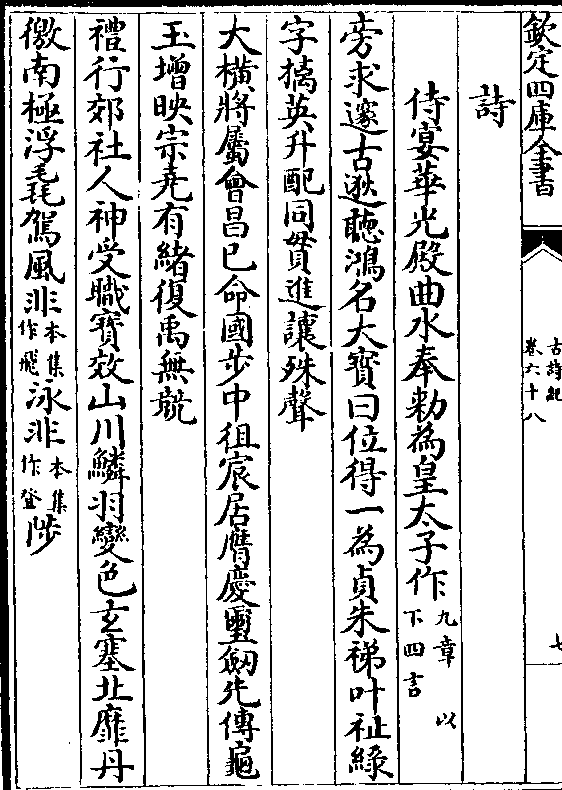 欽定四庫全書
古詩紀
卷六十八
七
詩
侍宴華光殿曲水奉勑為皇太子作九章以下四言
旁求邃古逖聽鴻名大寶曰位得一為貞朱祶叶祉緑
字摛英升配同貫進讓殊聲
大橫將屬會昌已命國步中徂宸居膺慶璽劔先傳龜
玉增映宗堯有緒復禹無競
禮行郊社人神受職寶效山川鱗羽變色玄塞北靡丹
徼南極浮毳駕風非本集作飛泳非本集作登陟